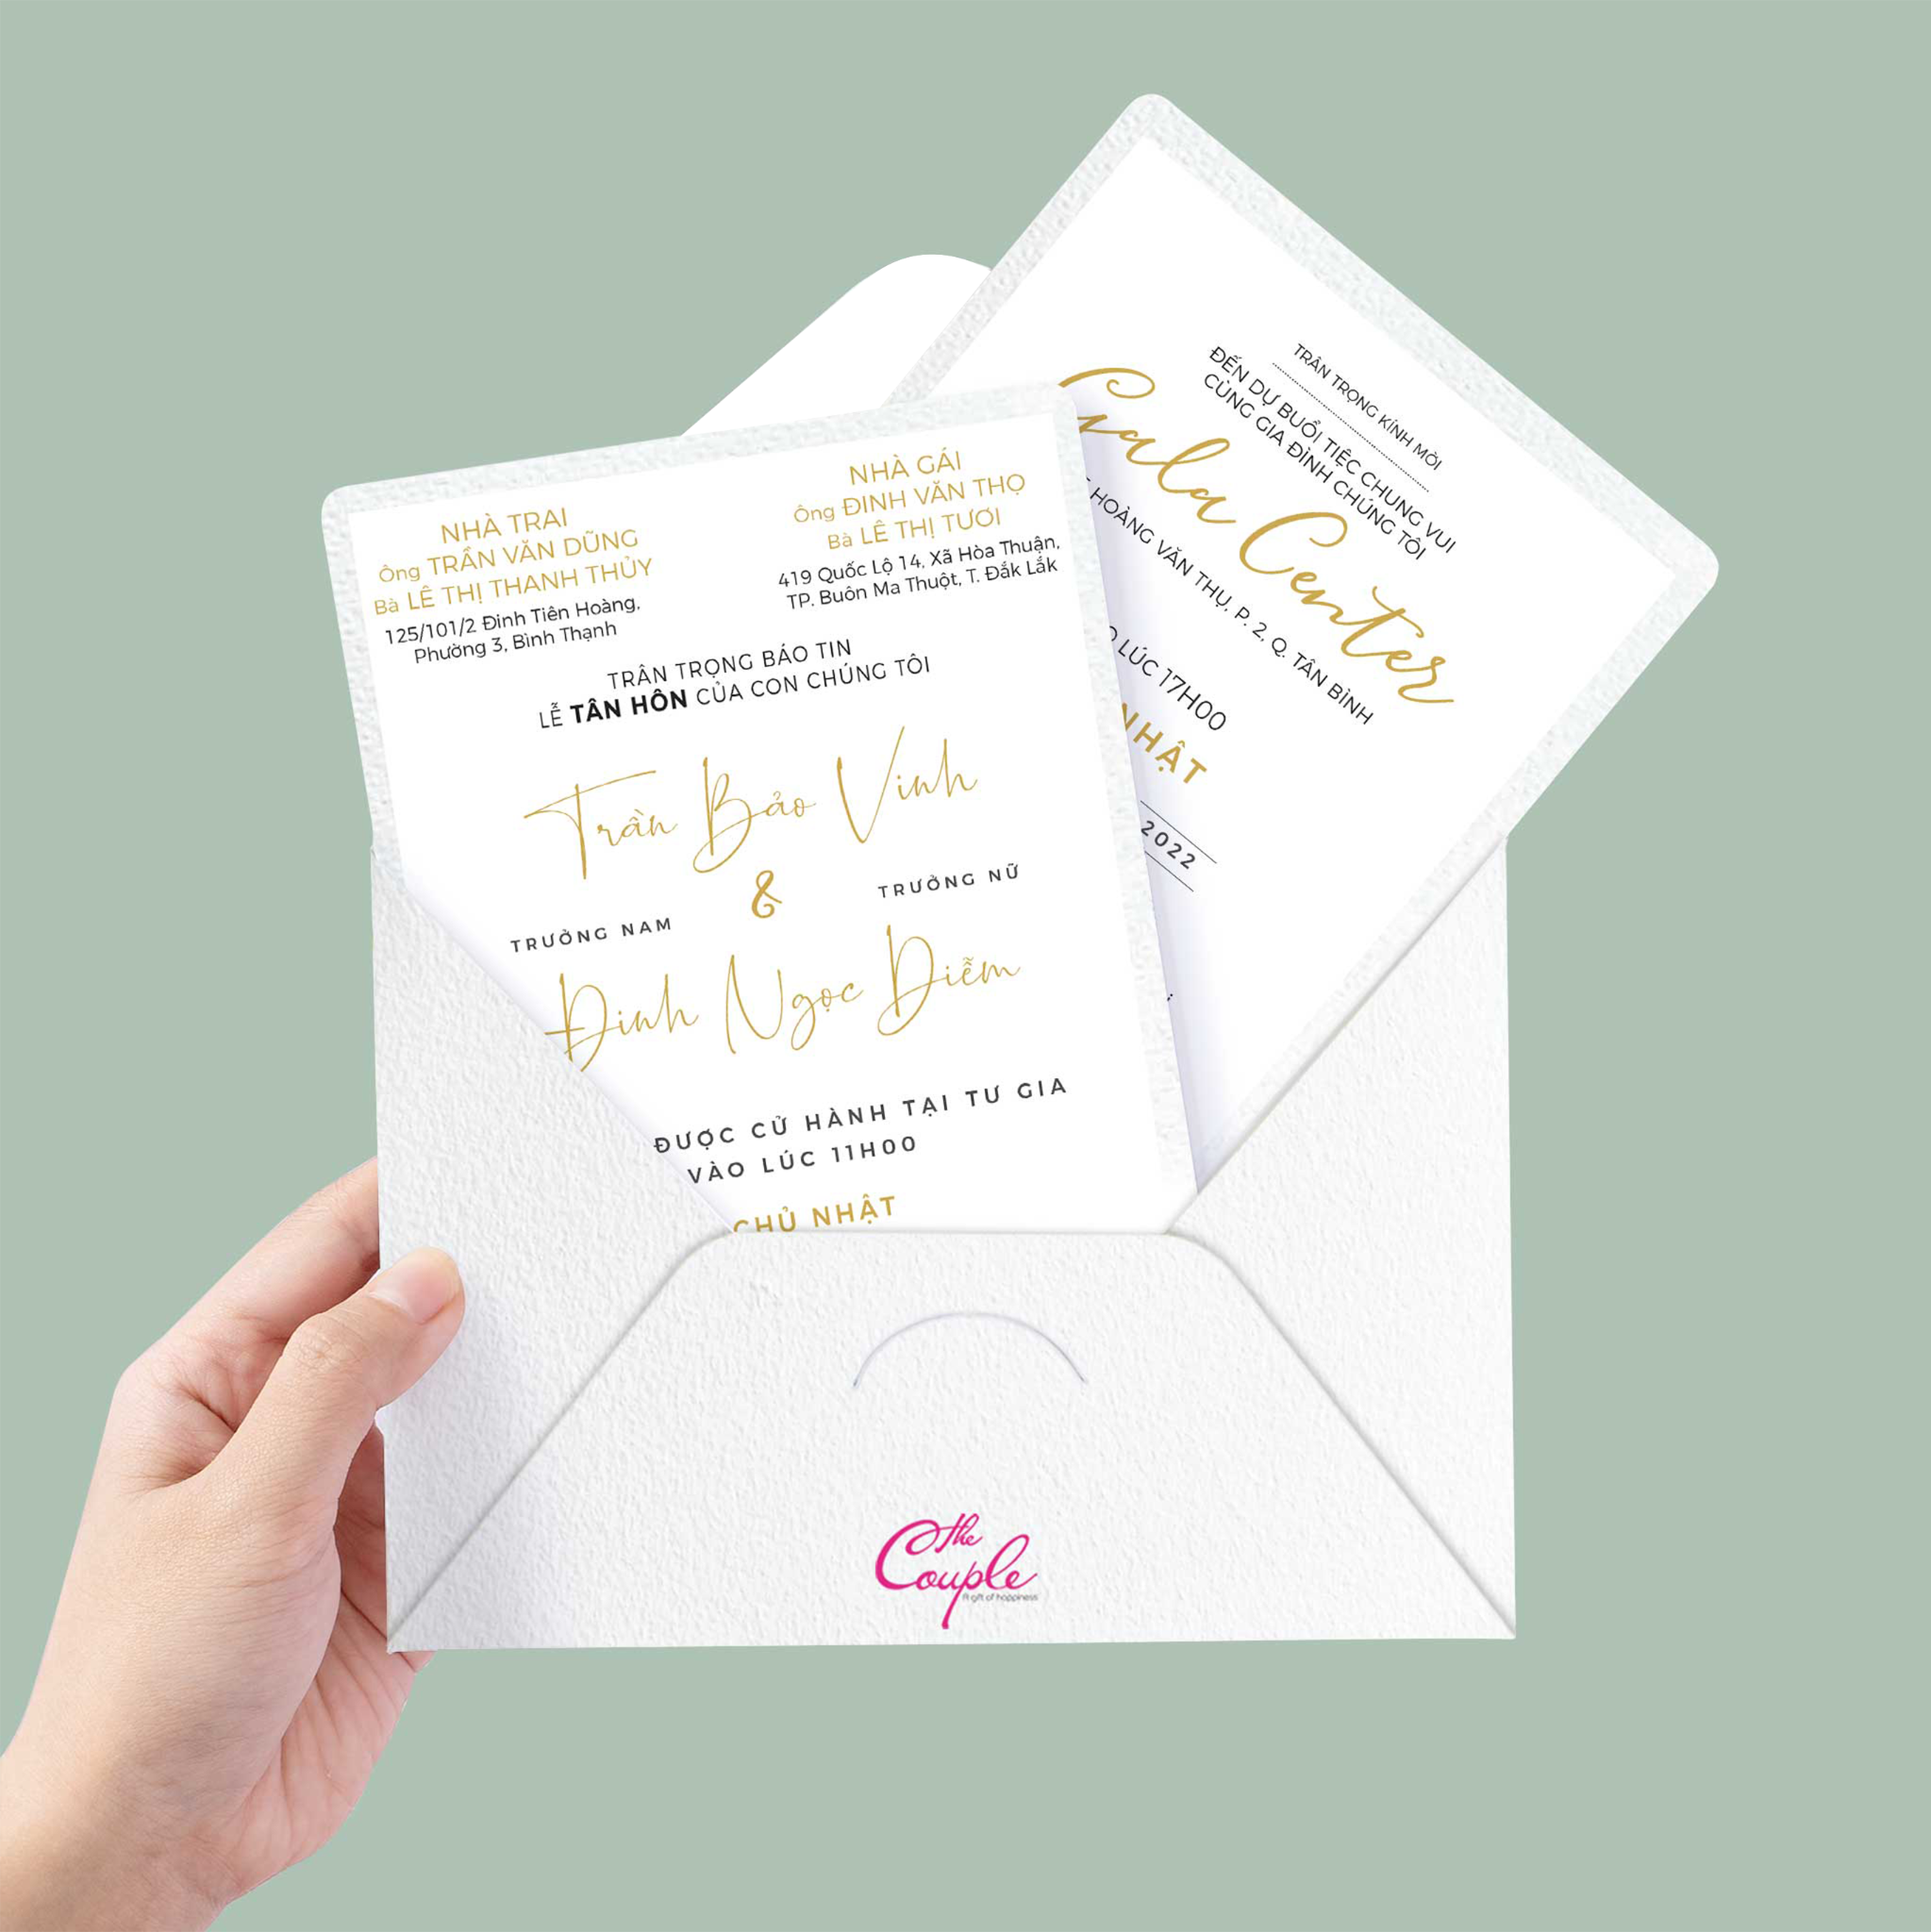 NHÀ TRAI
Ông TRẦN VĂN DŨNG
Bà LÊ THỊ THANH THỦY
125/101/2 Đinh Tiên Hoàng,
Phường 3, Bình Thạnh
NHÀ GÁI
Ông ĐINH VĂN THỌ
Bà LÊ THỊ TƯƠI
419 Quốc Lộ 14, Xã Hòa Thuận,
TP. Buôn Ma Thuột, T. Đắk Lắk
TRÂN TRỌNG BÁO TIN
LỄ TÂN HÔN CỦA CON CHÚNG TÔI
Trần Bảo Vinh
TRƯỞNG NAM
&
TRƯỞNG NỮ
Đinh Ngọc Diễm
ĐƯỢC CỬ HÀNH TẠI TƯ GIA
VÀO LÚC 11H00
CHỦ NHẬT
TRÂN TRỌNG KÍNH MỜI
ĐẾN DỰ BUỔI TIỆC CHUNG VUI
CÙNG GIA ĐÌNH CHÚNG TÔI
Gala Center
HOÀNG VĂN THỤ, P. 2, Q. TÂN BÌNH
LÚC 17H00
NHẬT
2022
The
Couple
A gift of happiness